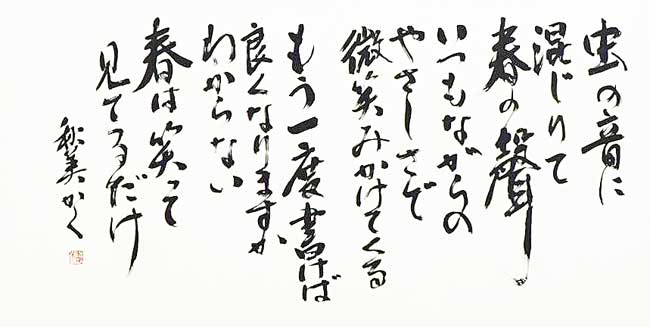 虫の音に
混じりて
春の聲
いつもながらの
やさしさで
微笑みかけてくる
もう一度書けば
良くなりますか
わからない
春は笑って
見てるだけ
秋美かく